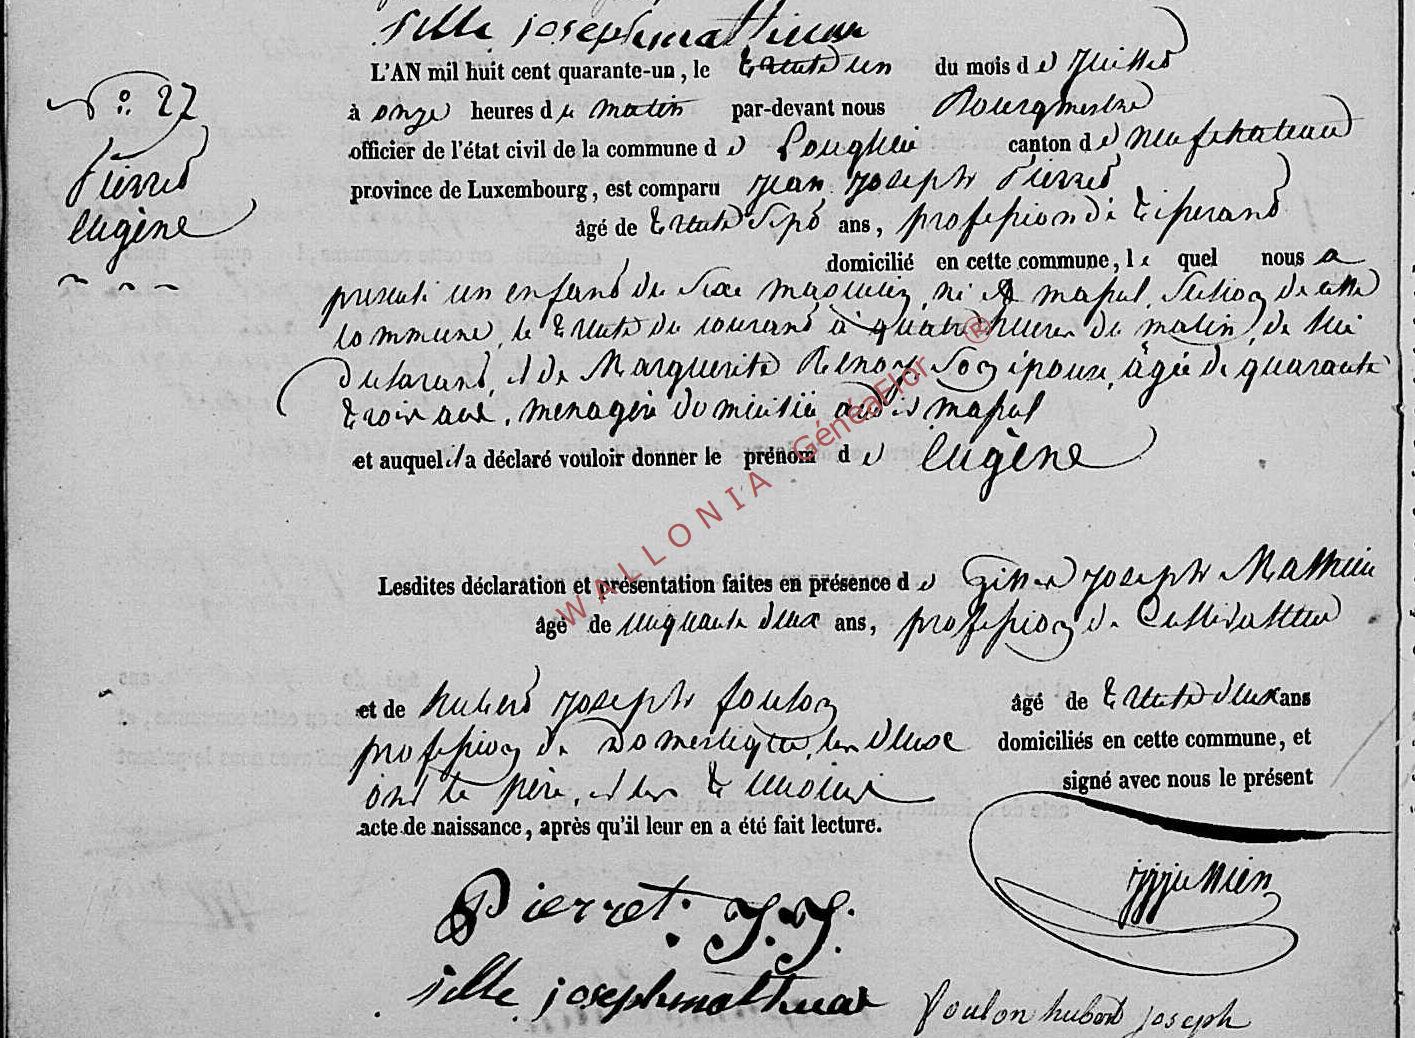 Sille josephmathieux
L'AN mil huit cent quarante-un, le trente un du mois de Juillet
N° 27
à onze heures de matin par-devant nous Bourgmestre
officier de l'état civil de la commune de Longlier canton de neufchateau
Pierret
province de Luxembourg, est comparu jean joseph Pierret
Eugène
âgé de trente sept ans, profession de tisserand
domicilié en cette commune, le quel nous a
presenté un enfant du sexe masculin, né à massul, section de cette
commune, le trente du courant à quatre heures du matin, de lui
declarant, et de Marguerite Renoy, son épouse, âgée de quarante
trois ans, menagère domiciliée audit massul
et auquel il a déclaré vouloir donner le prénom de Eugène
WALLONIA GénéaFlor ®
Lesdites déclaration et présentation faites en présence de joseph Mathieu
âgé de cinquante deux ans, profession de Cultivatteur
et de hubert joseph foulon âgé de trente deux ans
profession de Domestique, les deux domiciliés en cette commune, et
ont le père, et les témoins signé avec nous le présent
acte de naissance, après qu'il leur en a été fait lecture.
Pierret. J. J.
Sille josephmathieux
foulon hubert joseph